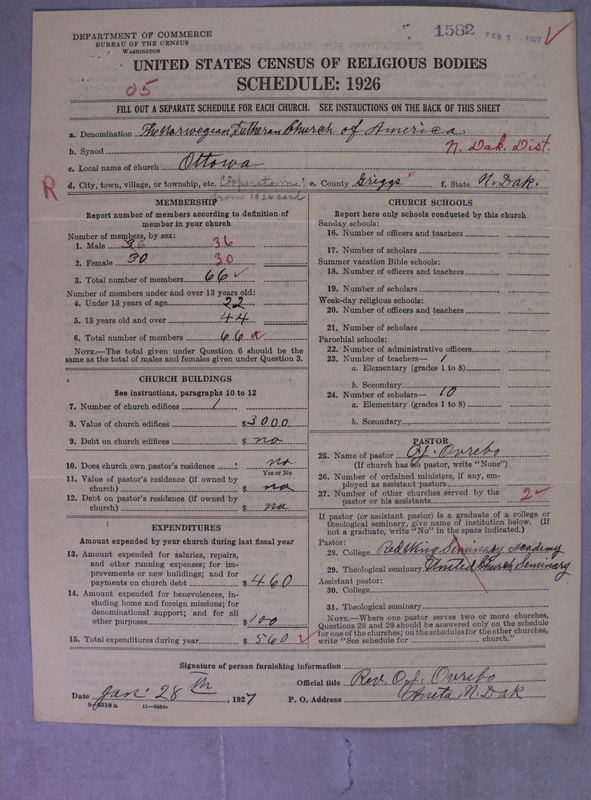 DEPARTMENT OF COMMERCE
BUREAU OF THE CENSUS
WASHINGTON
1582 FEB 1 1927
UNITED STATES CENSUS OF RELIGIOUS BODIES
SCHEDULE: 1926
05
FILL OUT A SEPARATE SCHEDULE FOR EACH CHURCH. SEE INSTRUCTIONS ON THE BACK OF THIS SHEET
a. Denomination The Norwegian Lutheran Church of America
b. Synod N. Dak. Dist.
c. Local name of church Ottowa
R
d. City, town, village, or township, etc. Cooperstown e. County Griggs f. State N. Dak.
from 1926 card
MEMBERSHIP
Report number of members according to definition of
member in your church
Number of members, by sex:
1. Male 36 36
2. Female 30 30
3. Total number of members 66
Number of members under and over 13 years old:
4. Under 13 years of age 22
5. 13 years old and over 44
6. Total number of members 66
NOTE.—The total given under Question 6 should be the
same as the total of males and females given under Question 3.
CHURCH BUILDINGS
See instructions, paragraphs 10 to 12
7. Number of church edifices 1
8. Value of church edifices $3000
9. Debt on church edifices $ no
10. Does church own pastor's residence? no
Yes or No
11. Value of pastor's residence (if owned by
church) $ no
12. Debt on pastor's residence (if owned by
church) $ no
EXPENDITURES
Amount expended by church during last fiscal year
13. Amount expended for salaries, repairs,
and other running expenses; for im-
provements or new buildings; and for
payments on church debt $460
14. Amount expended for benevolences, in-
cluding home and foreign missions; for
denominational support; and for all
other purposes $100
15. Total expenditures during year $560
CHURCH SCHOOLS
Report here only schools conducted by this church
Sunday schools:
16. Number of officers and teachers
17. Number of scholars
Summer vacation Bible schools:
18. Number of officers and teachers
19. Number of scholars
Week-day religious schools:
20. Number of officers and teachers
21. Number of scholars
Parochial schools:
22. Number of administrative officers
23. Number of teachers— 1
a. Elementary (grades 1 to 8)
b. Secondary
24. Number of scholars— 10
a. Elementary (grades 1 to 8)
b. Secondary
PASTOR
25. Name of pastor O.J. Ovrebo
(If church has no pastor, write "None")
26. Number of ordained ministers, if any, em-
ployed as assistant pastors
27. Number of other churches served by the
pastor or his assistants 2
If pastor (or assistant pastor) is a graduate of a college or
theological seminary, give name of institution below. (If
not a graduate, write "No" in the space indicated.)
Pastor:
28. College Red Wing Seminary Academy
29. Theological seminary United Church Seminary
Assistant pastor:
30. College
31. Theological seminary
NOTE.—Where one pastor serves two or more churches,
Questions 28 and 29 should be answered only on the schedule
for one of the churches; on the schedules for the other churches,
write "See schedule for church."
Signature of person furnishing information
Official title Rev. O.J. Ovrebo
Date Jan. 28th, 1927 P. O. Address Aneta N. Dak
8-5518a 11—9554a